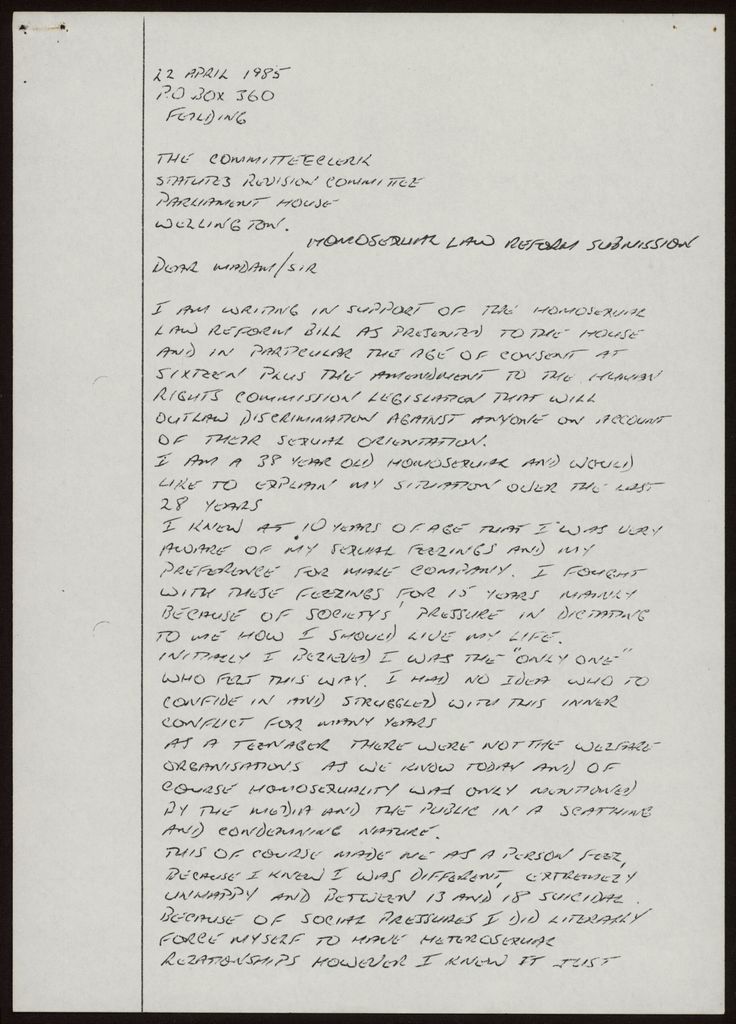 22 APRIL 1985
P.O BOX 360
FEILDING
THE COMMITTEECLERK
STATUTES REVISION COMMITTEE
PARLIAMENT HOUSE
WELLINGTON.
HOMOSEXUAL LAW REFORM SUBMISSION
DEAR MADAM/SIR
I AM WRITING IN SUPPORT OF THE HOMOSEXUAL
LAW REFORM BILL AS PRESENTED TO THE HOUSE
AND IN PARTICULAR THE AGE OF CONSENT AT
SIXTEEN PLUS THE AMENDMENT TO THE HUMAN
RIGHTS COMMISSION LEGISLATION THAT WILL
OUTLAW DISCRIMINATION AGAINST ANYONE ON ACCOUNT
OF THEIR SEXUAL ORIENTATION.
I AM A 38 YEAR OLD HOMOSEXUAL AND WOULD
LIKE TO EXPLAIN MY SITUATION OVER THE LAST
28 YEARS
I KNEW AT 10 YEARS OF AGE THAT I WAS VERY
AWARE OF MY SEXUAL FEELINGS AND MY
PREFERENCE FOR MALE COMPANY. I FOUGHT
WITH THESE FEELINGS FOR 15 YEARS MAINLY
BECAUSE OF SOCIETYS' PRESSURE IN DICTATING
TO ME HOW I SHOULD LIVE MY LIFE.
INITIALLY I BELIEVED I WAS THE "ONLY ONE"
WHO FELT THIS WAY. I HAD NO IDEA WHO TO
CONFIDE IN AND STRUGGLED WITH THIS INNER
CONFLICT FOR MANY YEARS
AS A TEENAGER THERE WERE NOT THE WELFARE
ORGANISATIONS AS WE KNOW TODAY AND OF
COURSE HOMOSEXUALITY WAS ONLY MENTIONED
BY THE MEDIA AND THE PUBLIC IN A SCATHING
AND CONDEMNING NATURE.
THIS OF COURSE MADE ME AS A PERSON FEEL,
BECAUSE I KNEW I WAS DIFFERENT, EXTREMELY
UNHAPPY AND BETWEEN 13 AND 18 SUICIDAL.
BECAUSE OF SOCIAL PRESSURES I DID LITERALLY
FORCE MYSELF TO HAVE HETEROSEXUAL
RELATIONSHIPS HOWEVER I KNEW IT JUST